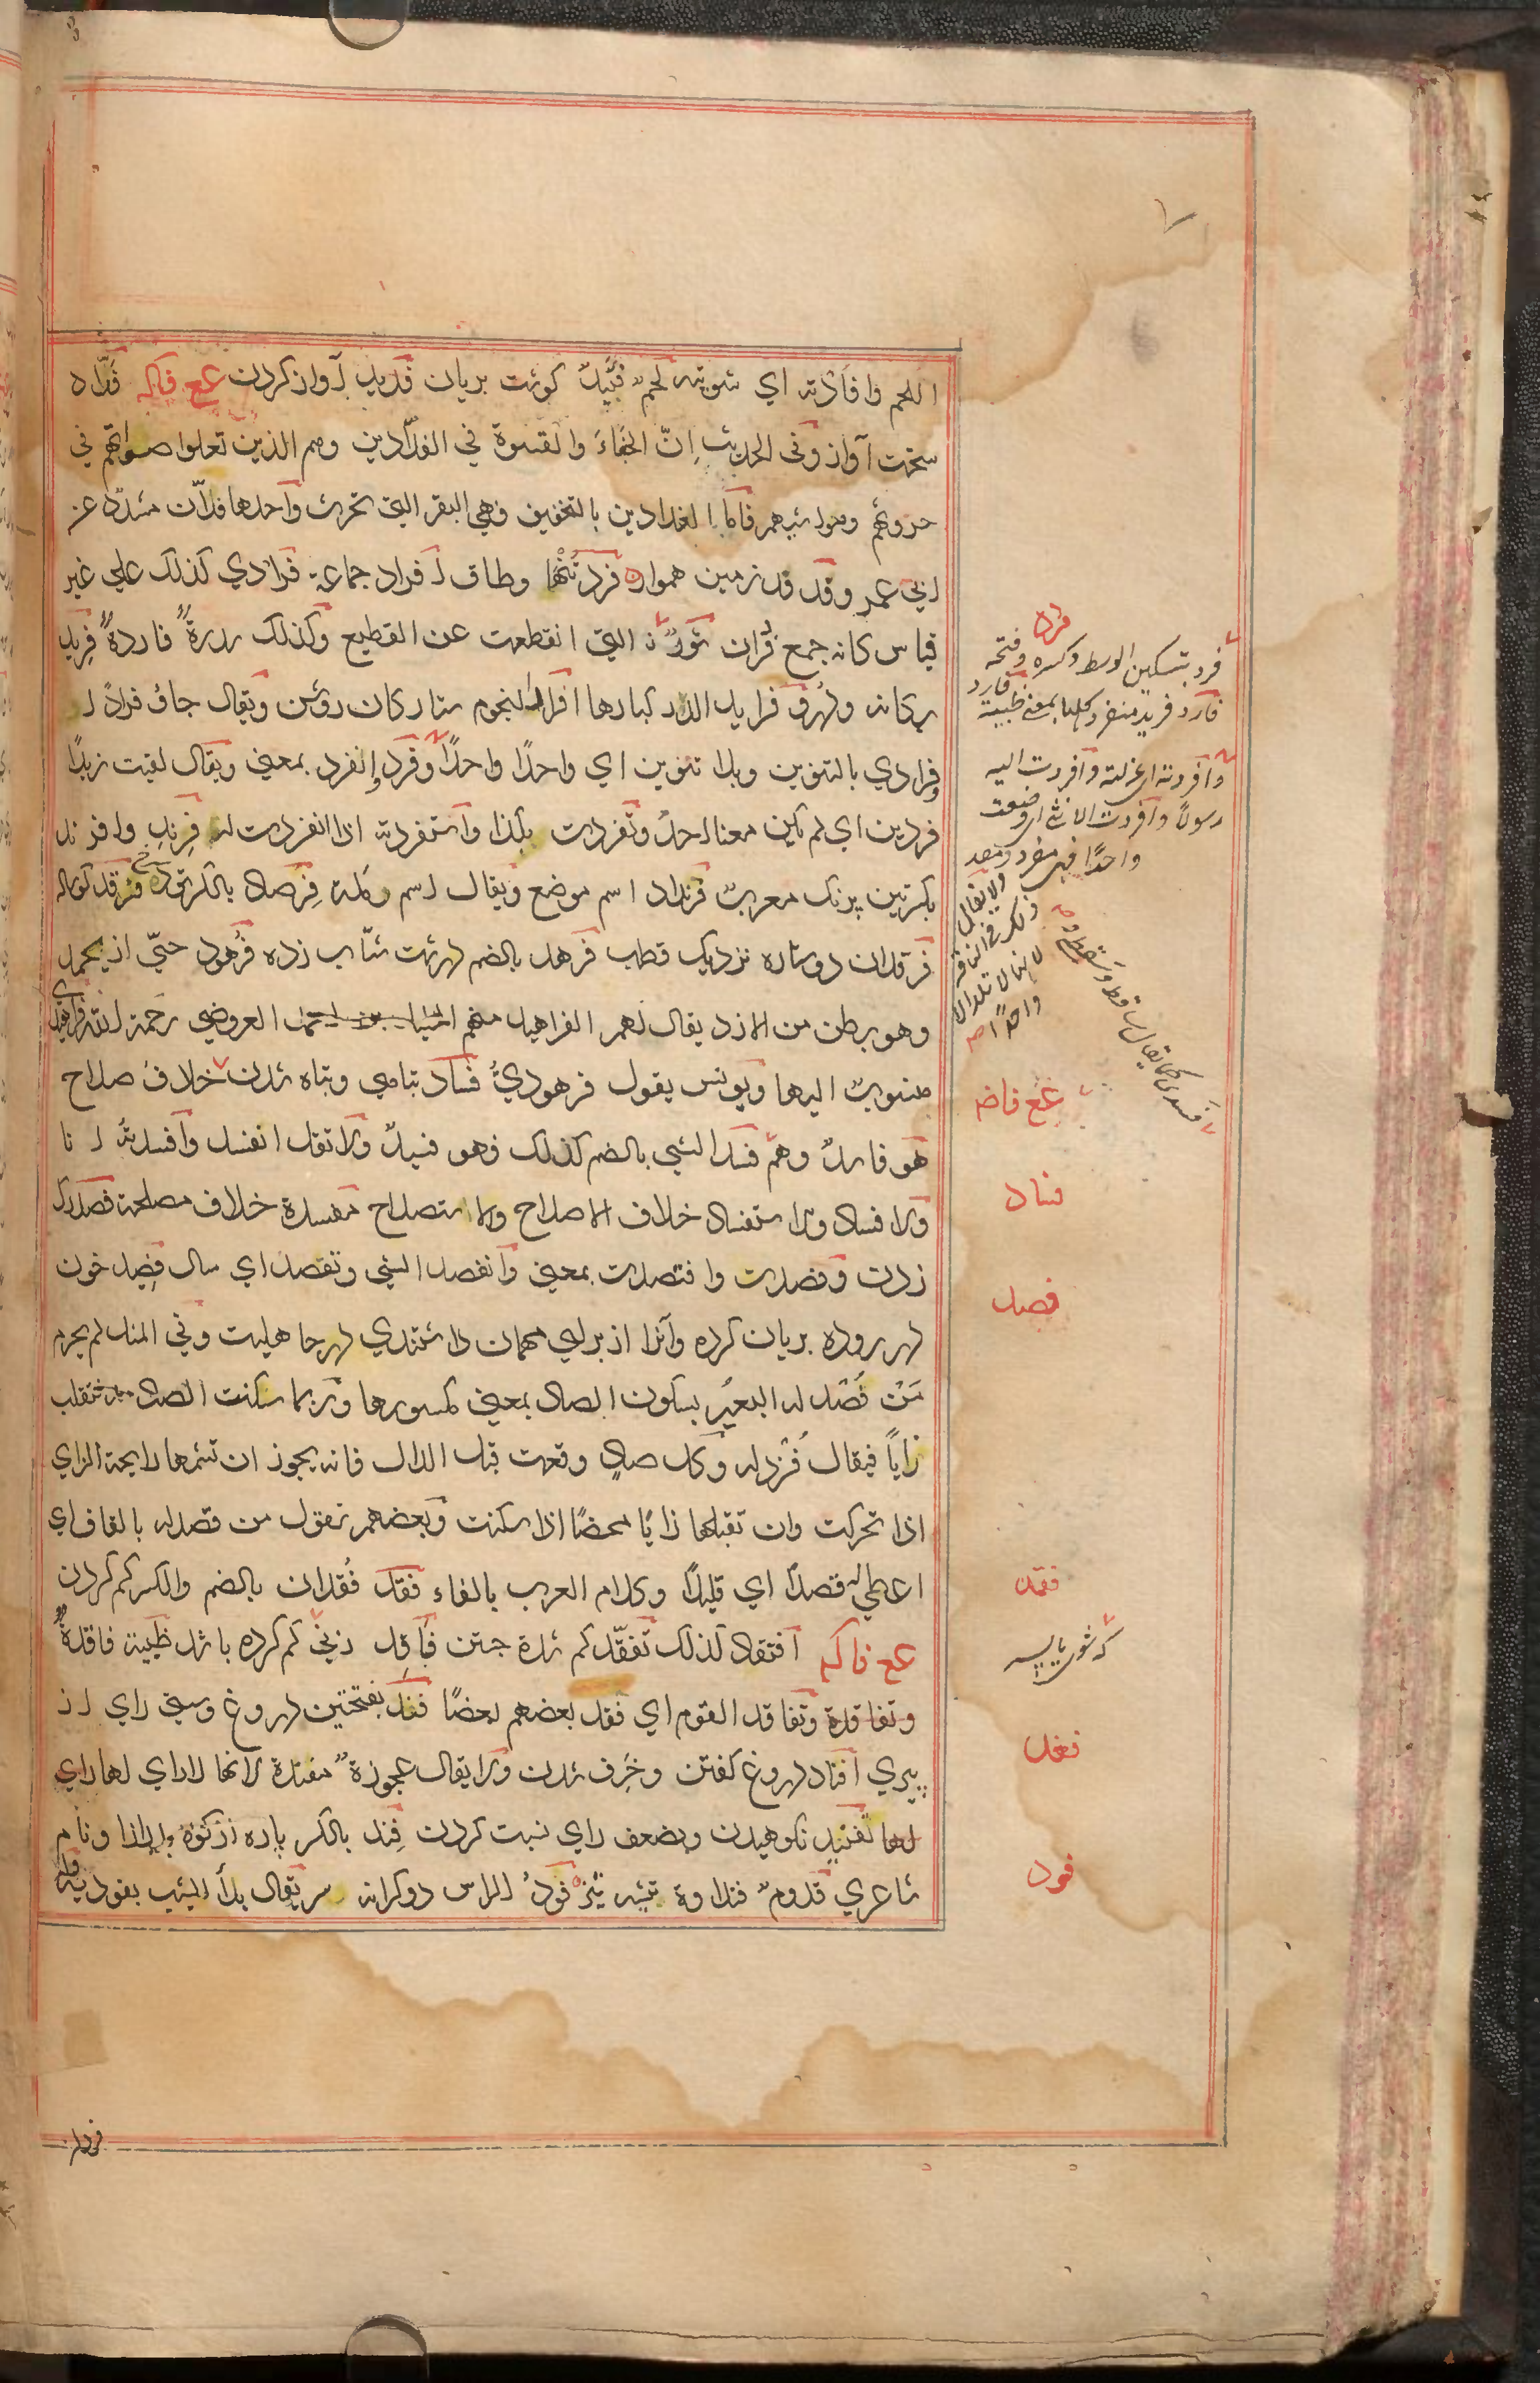 اللحم وافأدته اي شويته لحم فئيد كوشت بريان فديد آواز كردن عع فاكه فدّاد
سخت آواز وفى الحديث اِنّ الجَفاءَ والقسوة في الفدّادين وهم الذين تعلوا صواتهم في
حروثهم ومواشيهم فامّا الفدادين بالتخفيف فهي البقر التي تحرث واحدها فدّان مشدّد عن
ابي عمرو فدفد زمين هموار فرد تنها وطاق افراد جماعة فرادي كذلك علي غير
قياس كانه جمع فردان ثورٌ التي انقطعت عن القطيع وكذلك سدرةٌ فاردةٌ فريد
فرايد الدر كبارها افراد النجوم ستاركان روشن ويقال جاؤ فرادً ا
وفرادي بالتنوين وبلا تنوين اي واحدًا واحدًا وفرد وانفرد بمعني ويقال لقيت زيدًا
فردين اي لم يكن معنا احدٌ وتفردت بكذا واستفردته اذا انفردت له فرند وافرند
بكسرتين پرنك معرب فرنداد اسم موضع ويقال اسم رملة فرصاد بالكسر توت فرقد كوساله
فرقدان دو ستاره نزديك قطب فرهد بالضم فرهود حيّ از يحمد
وهو بطن من الازد يقال لهم الفراهيد منهم الخليل بن احمد العروضي رحمة الله فراهيدي
منسوب اليها ويونس يقول فرهوديٌّ فساد تباهي وتباه شدن خلاف صلاح
فهو فاسدٌ وهم فسد الشيي بالضم كذلك فهو فسيدٌ ولا تقل انفسد وافسدتُه انا
ولافساد ولاستفساد خلاف الاصلاح والاستصلاح مفسدة خلاف مصلحة فصد رك
زدن وفصدت وافتصدت بمعني وانفصد الشي وتفصد اي سال فصيد خون
در روده بريان كرده وآنرا از براي مهمان داشتندي در جاهليت وفي المثل لم يحرم
مَنْ فُصْد له البعيرُ بسكون الصاد بمعني كسورها وربما سكنت الصاد فتقلب
زايًا فيقال فُزد له وكل صادٍ وقعت قبل الدال فانه يجوز ان تشمها رايحة الزاي
اذا تحركت وان تقبلها زايًا محضًا اذا سكنت وبعضهم نقول من قصد له بالقاف اي
اعطي له قصدًا اي قليلًا وكلام العرب بالفاء فقد فُقدان بالضم والكسر كم كردن
عع فاكه افتقاد كذلك تفقّد كم شدة جستن فاقد زني كم كرده باشد ظبية فاقدةٌ
وتفاقدة وتفاقد القوم اي فقد بعضهم بعضًا فند بفتحتين دروغ وسستي راي از
پيري افناد دروغ كفتن وخرف شدن ولا يقال عجوزة مفندة لانها لاراي لها راي
لها تفنيد نكوهيدن وبضعف راي نسبت كردن فِند بالكسر پاره از كوه ونام
شاعري قدوم فنداوة تيشه تيز فودُ الراس دو كرانه سر يقال بدأ الشيب بفوديه
فرد
فرد بتسكين الوسط وكسره وفتحه
فارد فريد منفرد كلها بمعني ظبية فارد
وافردته اي عزلته وافردت اليه
رسولًا وافردت الانثي اي وضعت
واحدًا فهي مفرد
ولا يقال
ذلك في الناقة
لانها لا تلد الا
واحدًا صح
عع فاضه
فساد
فصد
فقد
فند
فود